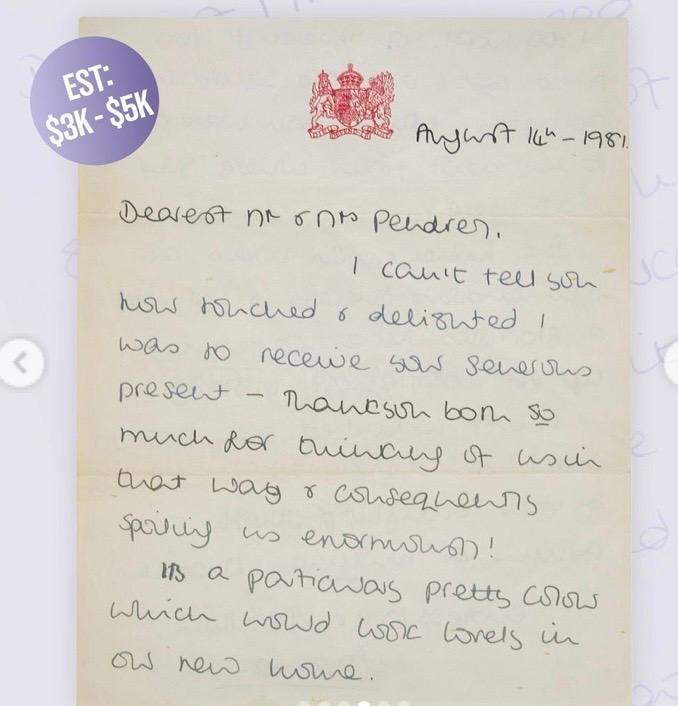 EST:
$3K - $5K
August 14th - 1981.
Dearest Mr & Mrs
I can't tell you
how touched & delighted I
was to receive your generous
present - Thank you both so
much for thinking of us in
that way & consequently
spoiling us enormously!
It's a particularly pretty colour
which would look lovely in
our new home.